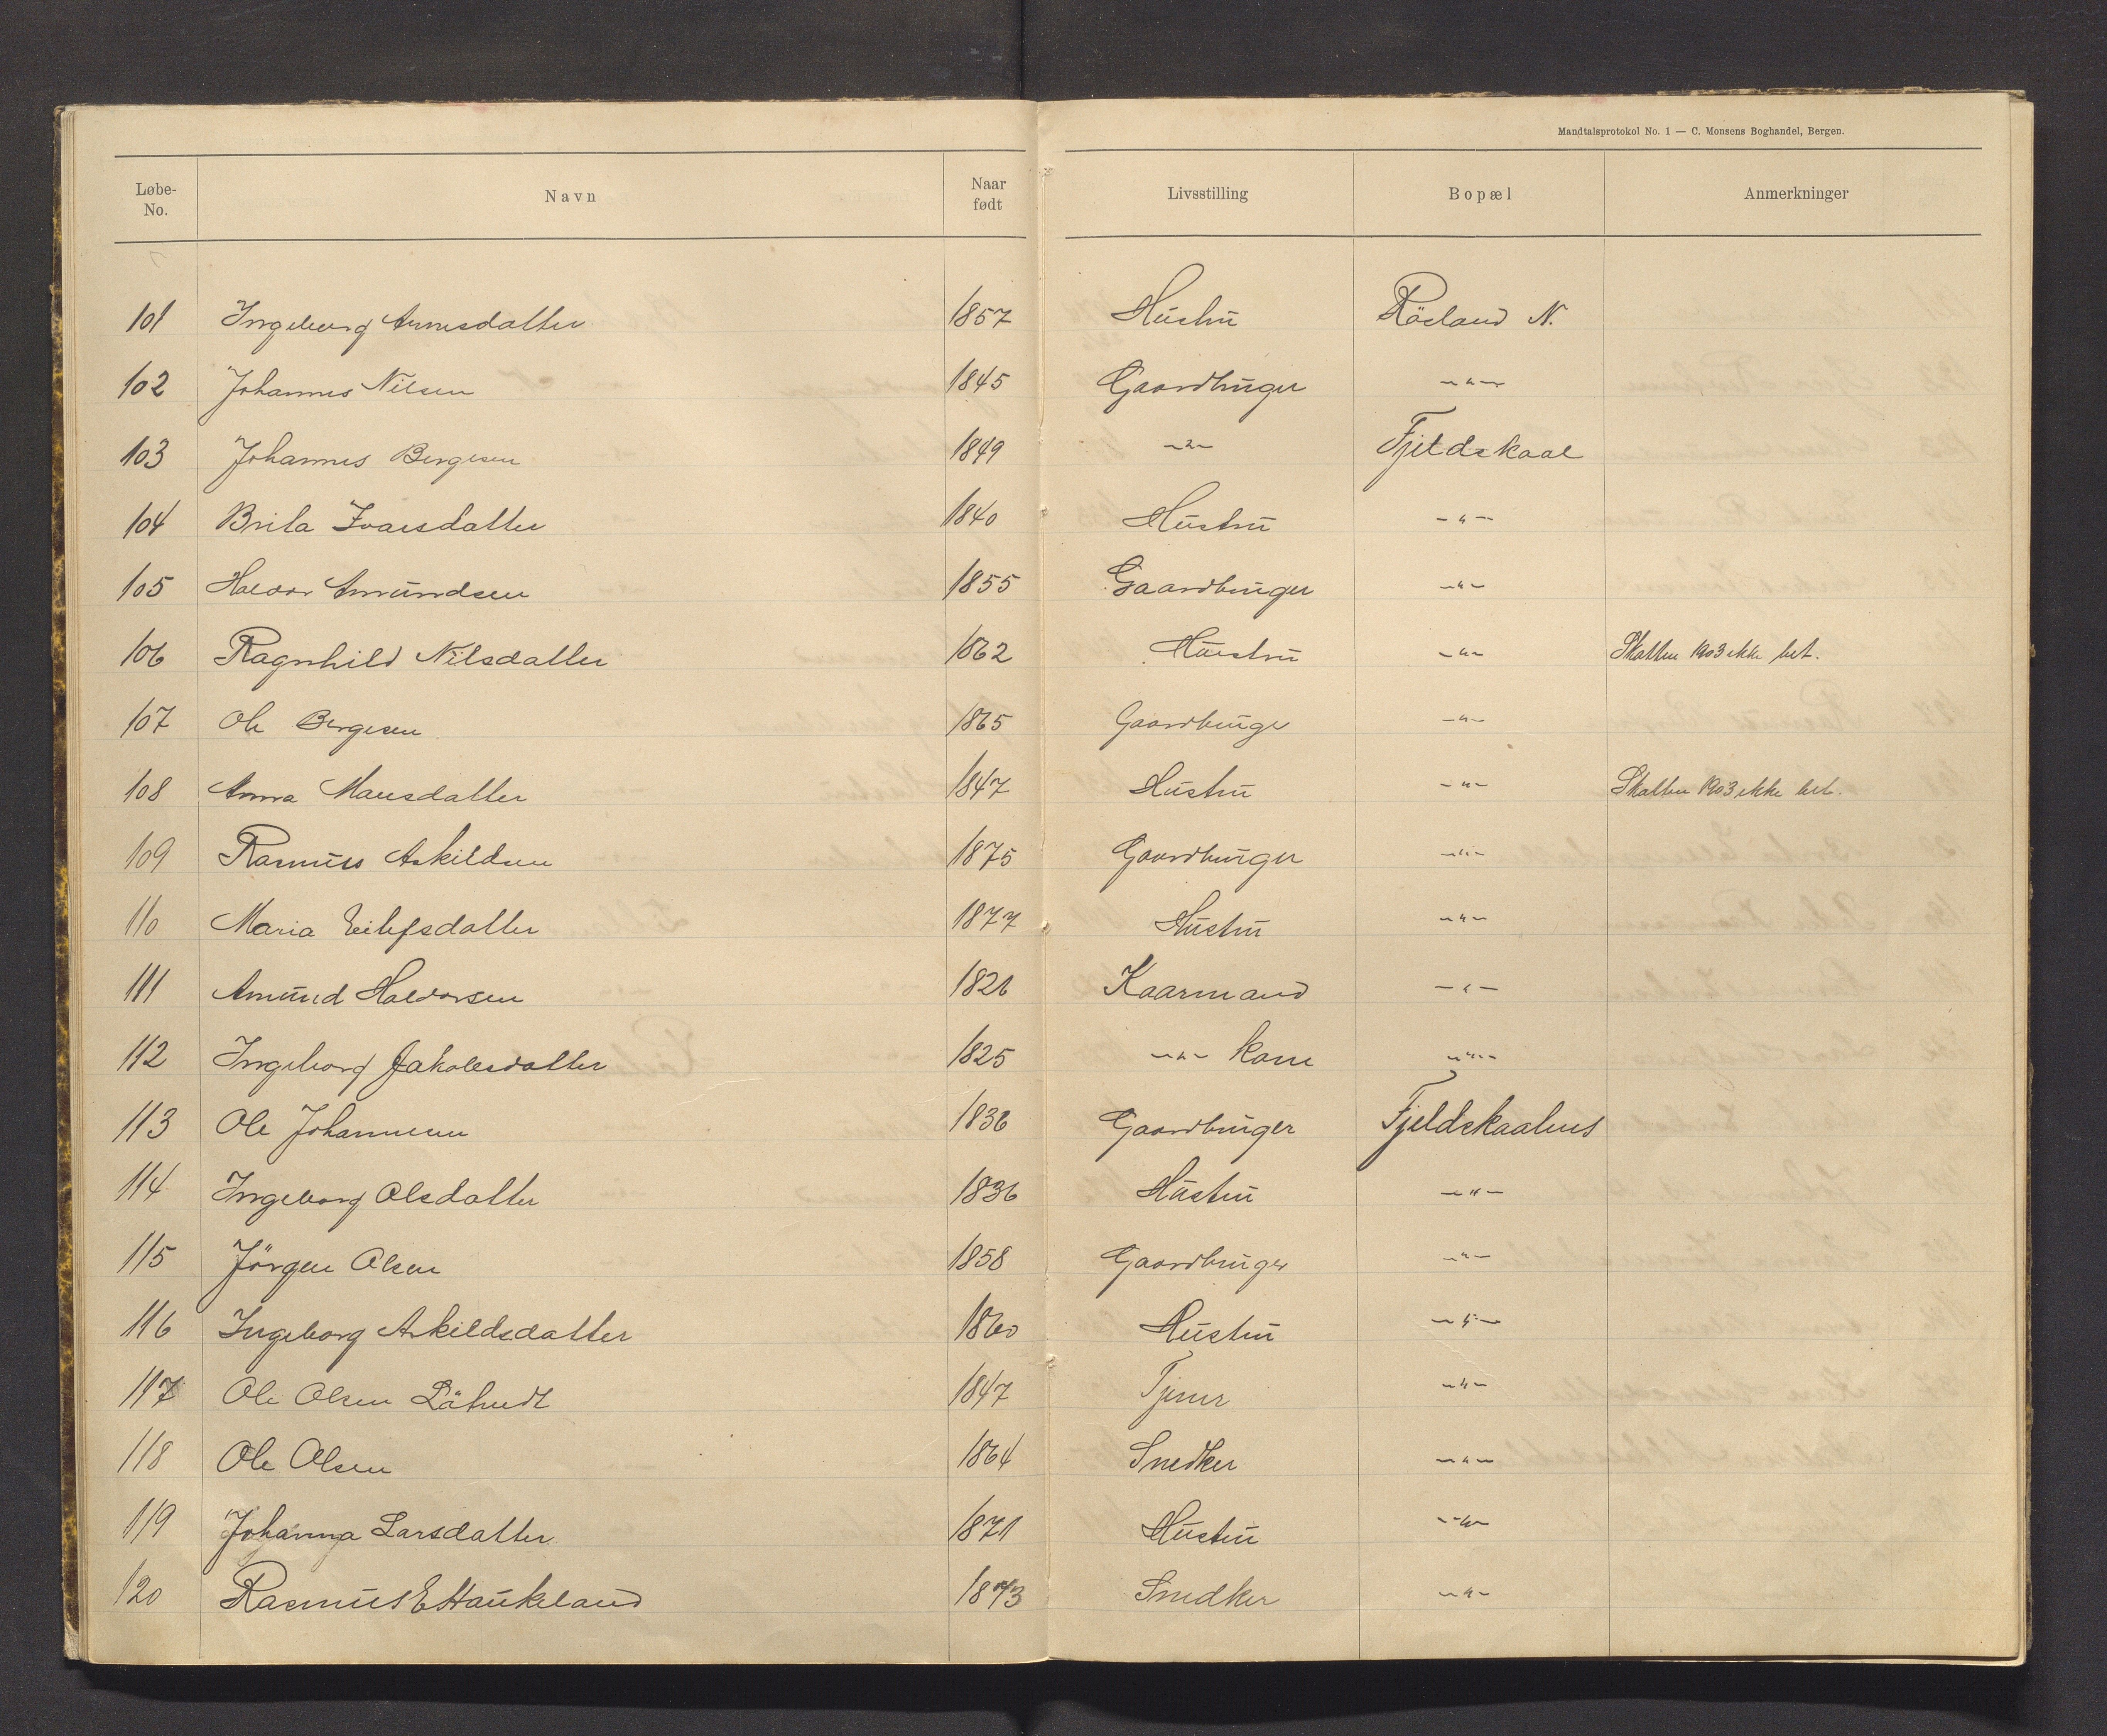 Mandtalsprotokol No. 1 — C. Monsens Boghandel, Bergen.
Løbe-No. Navn Naar født Livsstilling Bopæl Anmerkninger
101 Ingeborg Arnesdatter 1857 Hustru Røsland N.
102 Johannes Nilsen 1845 Gaardbruger —"—
103 Johannes Bergesen 1849 —"— Fjeldskaal
104 Brita Ivarsdatter 1840 Hustru —"—
105 Haldor Amundsen 1855 Gaardbruger —"—
106 Ragnhild Nilsdatter 1862 Hustru —"— Skatten 1903 ikke bet.
107 Ole Bergesen 1865 Gaardbruge —"—
108 Anna Mansdatter 1847 Hustru —"— Skatten 1903 ikke bet.
109 Rasmus Askildsen 1875 Gaardbruger —"—
110 Maria Eilefsdatter 1877 Hustru —"—
111 Amund Haldorsen 1826 Kaarmand —"—
112 Ingeborg Jakobsdatter 1825 —"— kone —"—
113 Ole Johannesen 1836 Gaardbruger Fjeldskaalnes
114 Ingeborg Olsdatter 1836 Hustru —"—
115 Jörgen Olsen 1858 Gaardbruger —"—
116 Ingeborg Askildsdatter 1860 Hustru —"—
117 Ole Olsen 1847 Tjener —"—
118 Ole Olsen 1864 Snedker —"—
119 Johanna Larsdatter 1871 Hustru —"—
120 Rasmus E Haukeland 1873 Snedker —"—